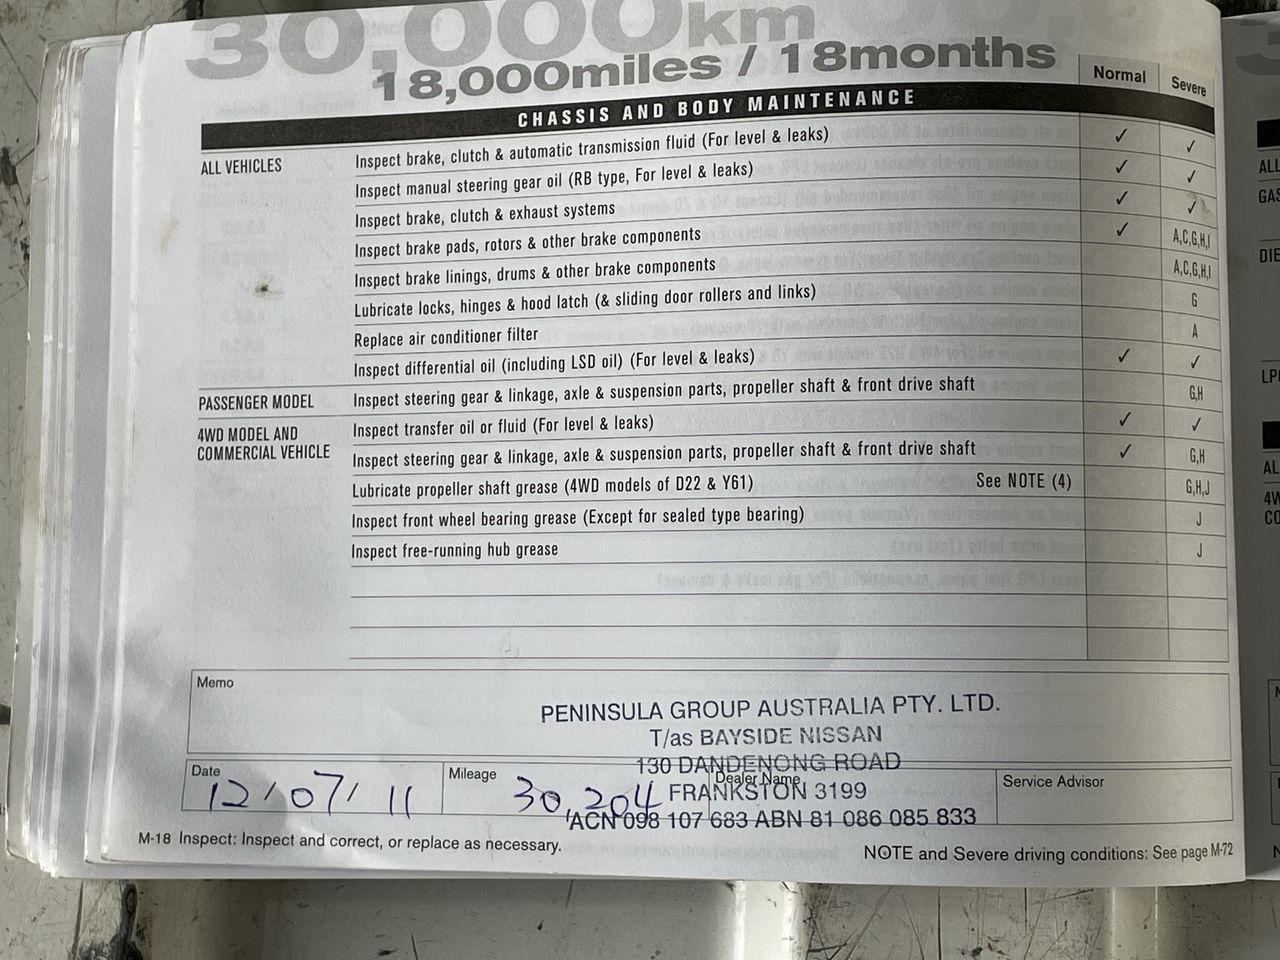 30,000km
18,000miles / 18months
Normal Severe
CHASSIS AND BODY MAINTENANCE
ALL VEHICLES Inspect brake, clutch & automatic transmission fluid (For level & leaks) ✓ ✓
Inspect manual steering gear oil (RB type, For level & leaks) ✓ ✓
Inspect brake, clutch & exhaust systems ✓ ✓
Inspect brake pads, rotors & other brake components ✓ A,C,G,H,I
Inspect brake linings, drums & other brake components A,C,G,H,I
Lubricate locks, hinges & hood latch (& sliding door rollers and links) G
Replace air conditioner filter A
Inspect differential oil (including LSD oil) (For level & leaks) ✓ ✓
PASSENGER MODEL Inspect steering gear & linkage, axle & suspension parts, propeller shaft & front drive shaft G,H
4WD MODEL AND COMMERCIAL VEHICLE Inspect transfer oil or fluid (For level & leaks) ✓ ✓
Inspect steering gear & linkage, axle & suspension parts, propeller shaft & front drive shaft ✓ G,H
Lubricate propeller shaft grease (4WD models of D22 & Y61) See NOTE (4) G,H,J
Inspect front wheel bearing grease (Except for sealed type bearing) J
Inspect free-running hub grease J
Memo
PENINSULA GROUP AUSTRALIA PTY. LTD.
T/as BAYSIDE NISSAN
130 DANDENONG ROAD
FRANKSTON 3199
ACN 098 107 683 ABN 81 086 085 833
Date 12/07/11
Mileage 30,204
Dealer Name
Service Advisor
M-18 Inspect: Inspect and correct, or replace as necessary.
NOTE and Severe driving conditions: See page M-72